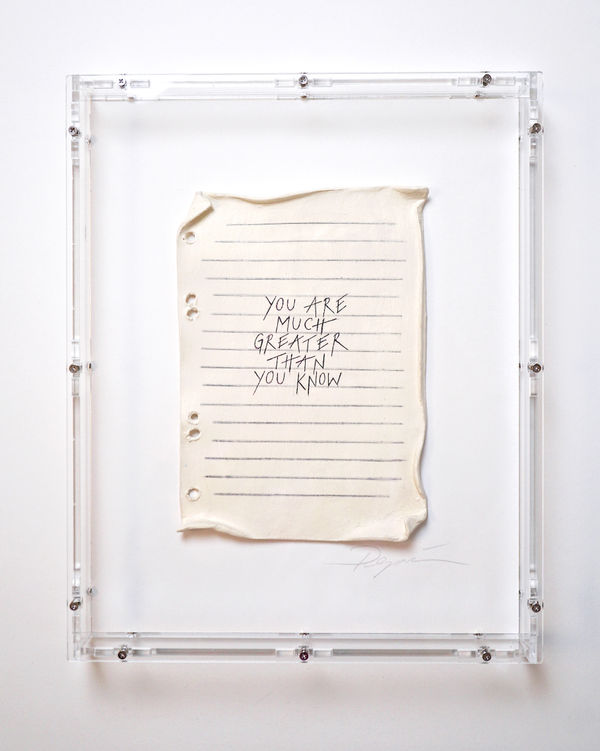 YOU ARE
MUCH
GREATER
THAN
YOU KNOW